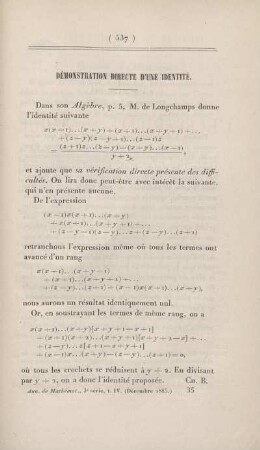 ( 537 )
DÉMONSTRATION DIRECTE D'UNE IDENTITÉ.
Dans son Algèbre, p. 5, M. de Longchamps donne
l'identité suivante
x(x+1)...(x+y)+(x+1)...(x+y+1)+...
+(z−y)(z−y+1)...z
et ajoute que sa vérification directe présente des diffi-
cultés. On lira donc peut-être avec intérêt la suivante,
qui n'en présente aucune.
De l'expression
(x−1)x(x+1)...(x+y)
+x(x+1)...(x+y+1)+...
+(z−y−1)(z−y)...z+(z−y)...(z+1)
retranchons l'expression même où tous les termes ont
avancé d'un rang
nous aurons un résultat identiquement nul.
Or, en soustrayant les termes de même rang, on a
x(x+1)...(x+y)[x+y+1−x+1]
+(x+1)...(x+y+1)[x+y+2−x]+...
+(z−y)...z[z+1−z+y+1]
où tous les crochets se réduisent à y + 2. En divisant
par y + 2, on a donc l'identité proposée. CH. B.
Ann. de Mathémat., 3e série, t. IV. (Décembre 1885.) 35